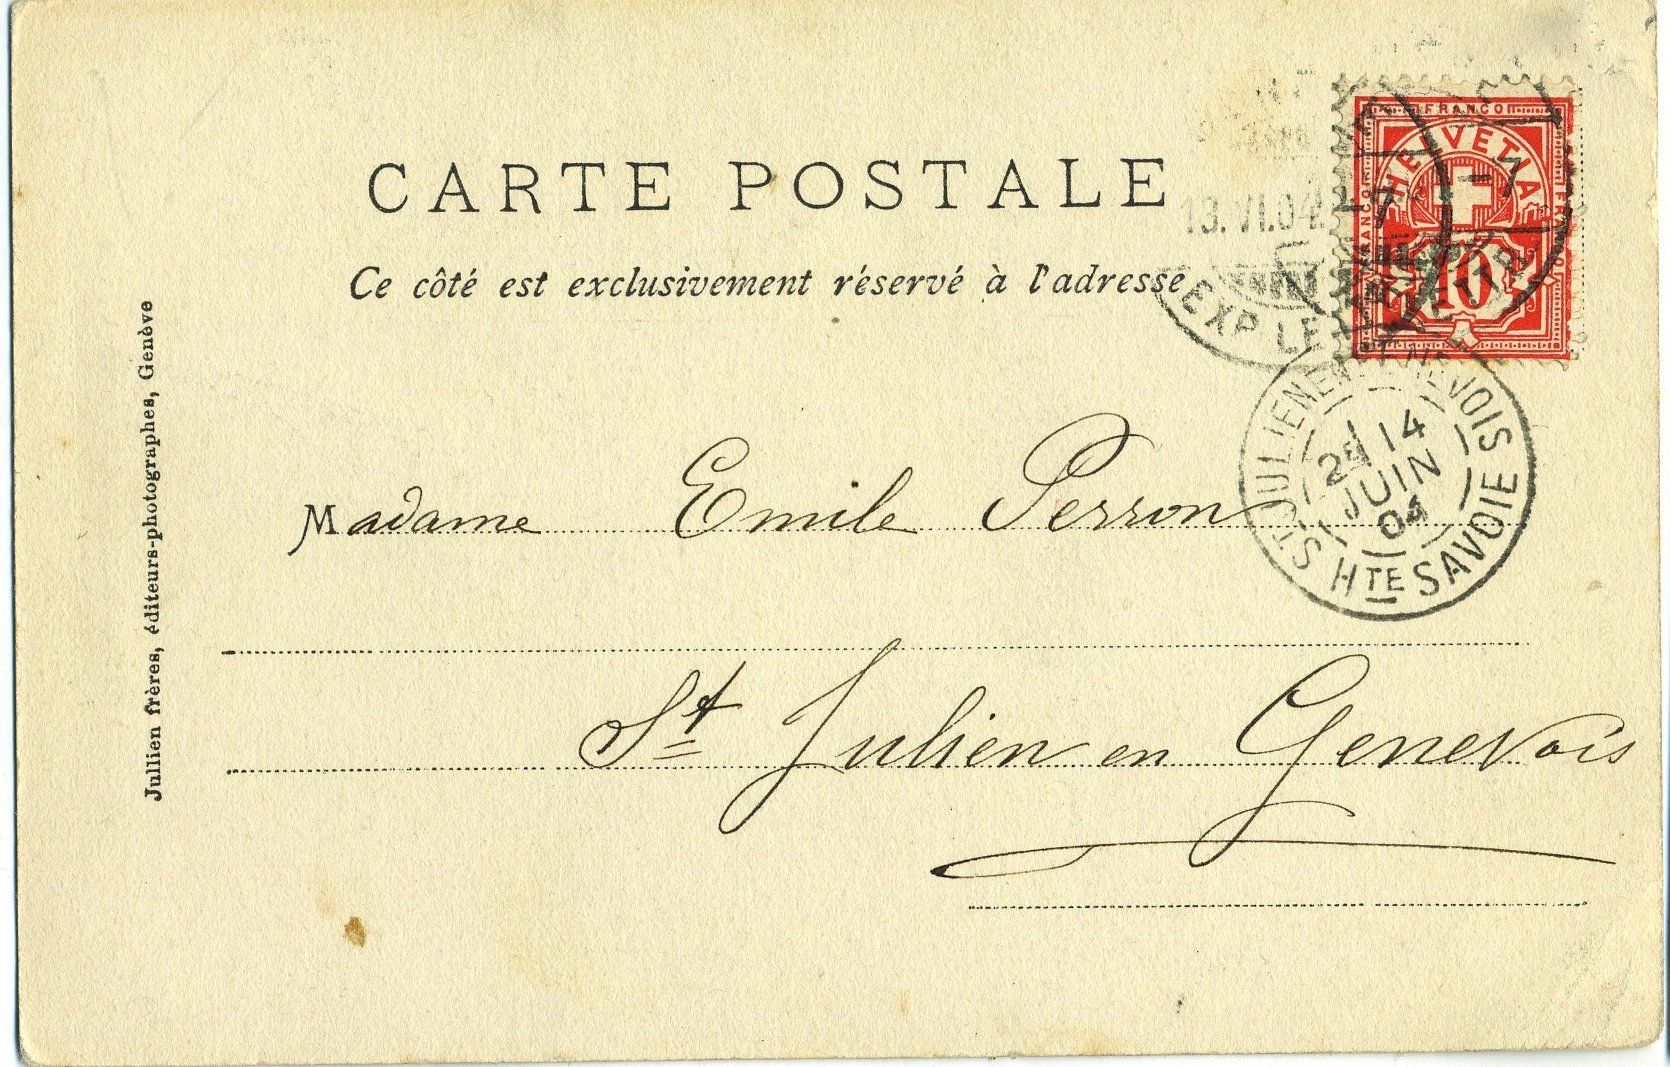 CARTE POSTALE
Ce côté est exclusivement réservé à l'adresse
FRANCO
HELVETIA
FRANCO
FRANCO
10
13.VI.04.
-7
-7
EXP. LE
ST JULIEN EN GENEVOIS
2E 14
JUIN
04
HTE SAVOIE
Madame Emile Perron
St Julien en Genevois
Jullien frères, éditeurs-photographes, Genève